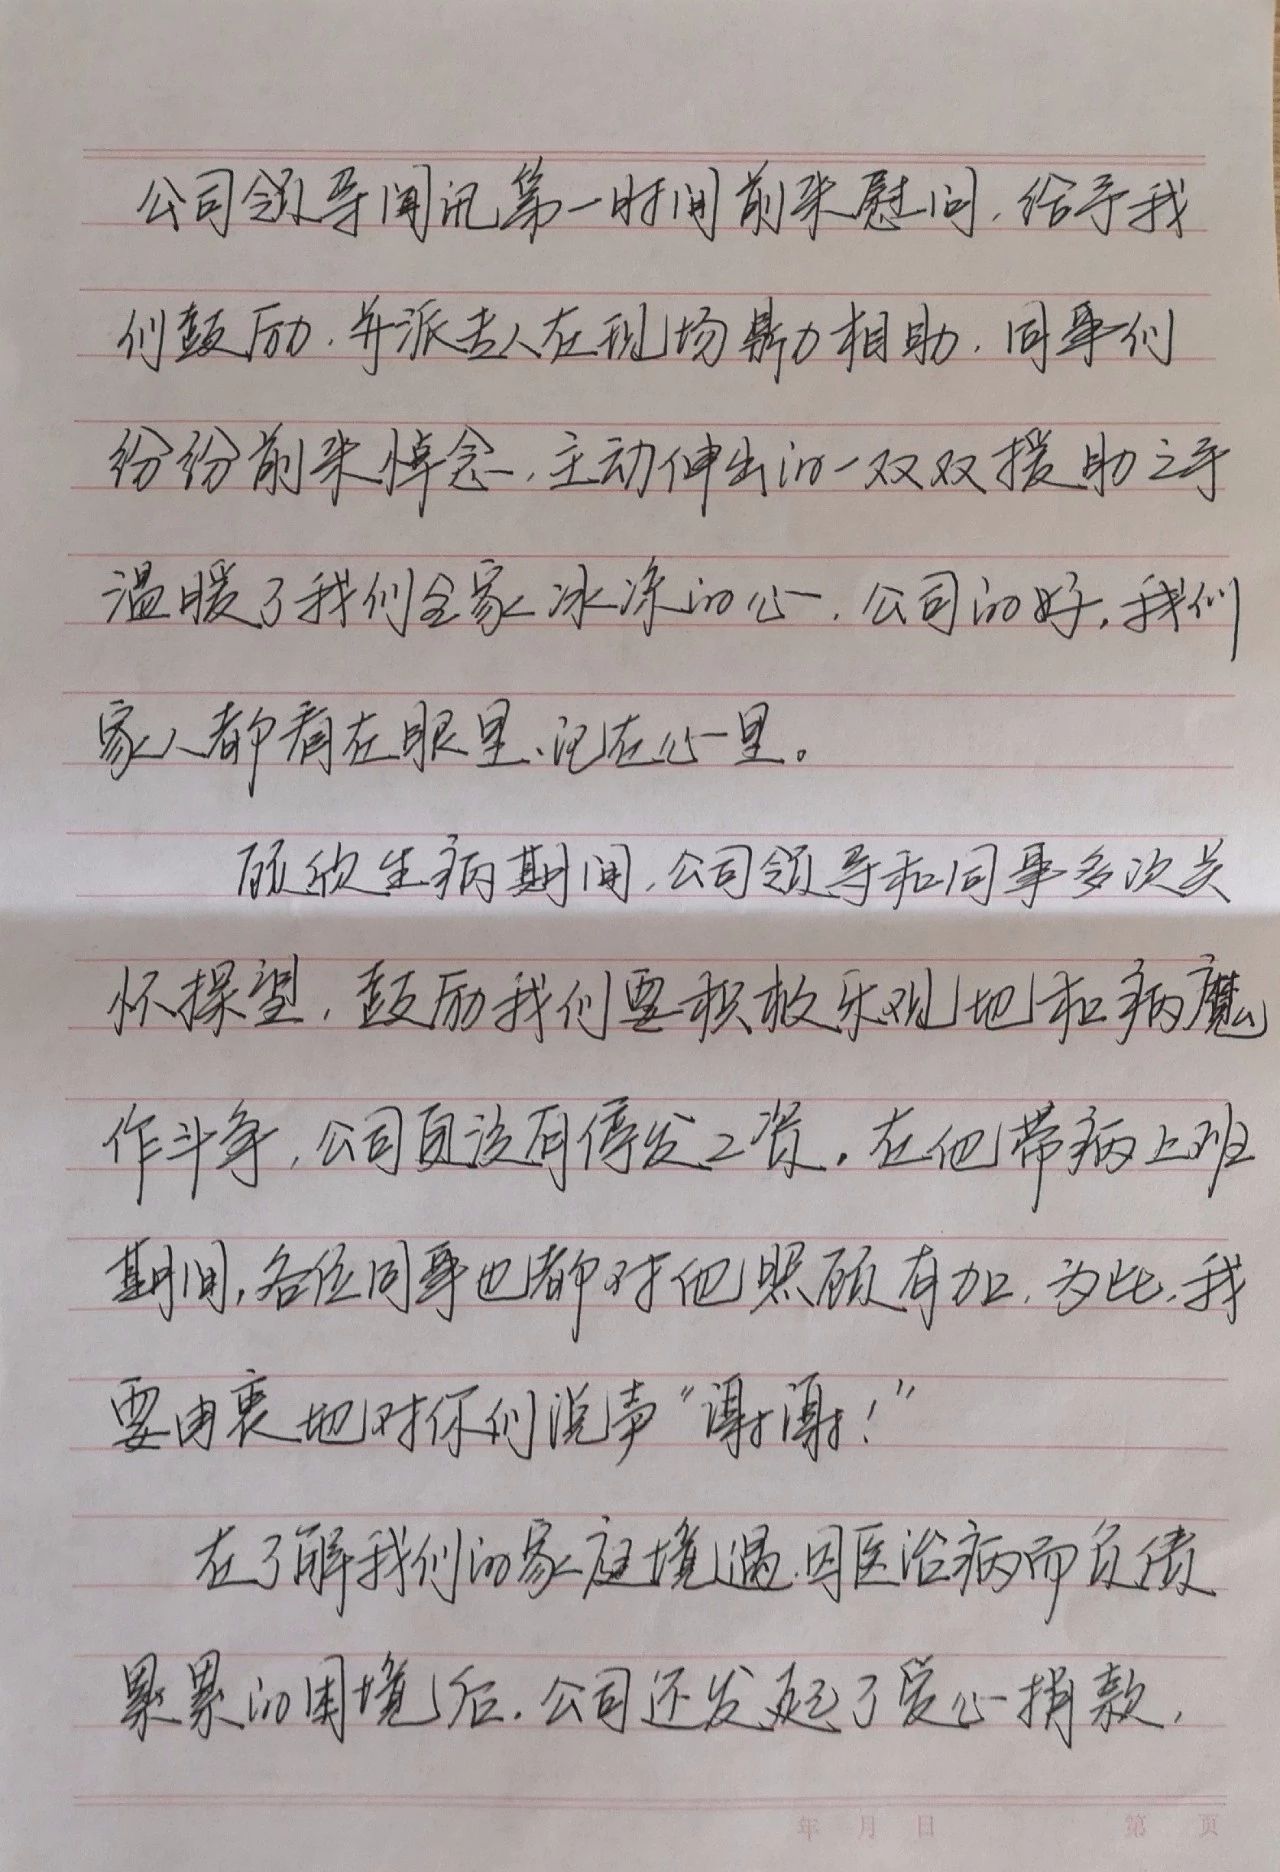 公司领导闻讯第一时间前来慰问，给予我
们鼓励，并派专人在现场鼎力相助，同事们
纷纷前来悼念，主动伸出的一双双援助之手
温暖了我们全家冰冻的心，公司的好，我们
家人都看在眼里、记在心里。
顾欣生病期间，公司领导和同事多次关
怀探望，鼓励我们要积极乐观地和病魔
作斗争，公司且没有停发工资。在他带病上班
期间，各位同事也都对他照顾有加，为此，我
要由衷地对你们说声“谢谢！”
在了解我们的家庭境遇，因医治病而负债
累累的困境后，公司还发起了爱心捐款，
年 月 日 第 页